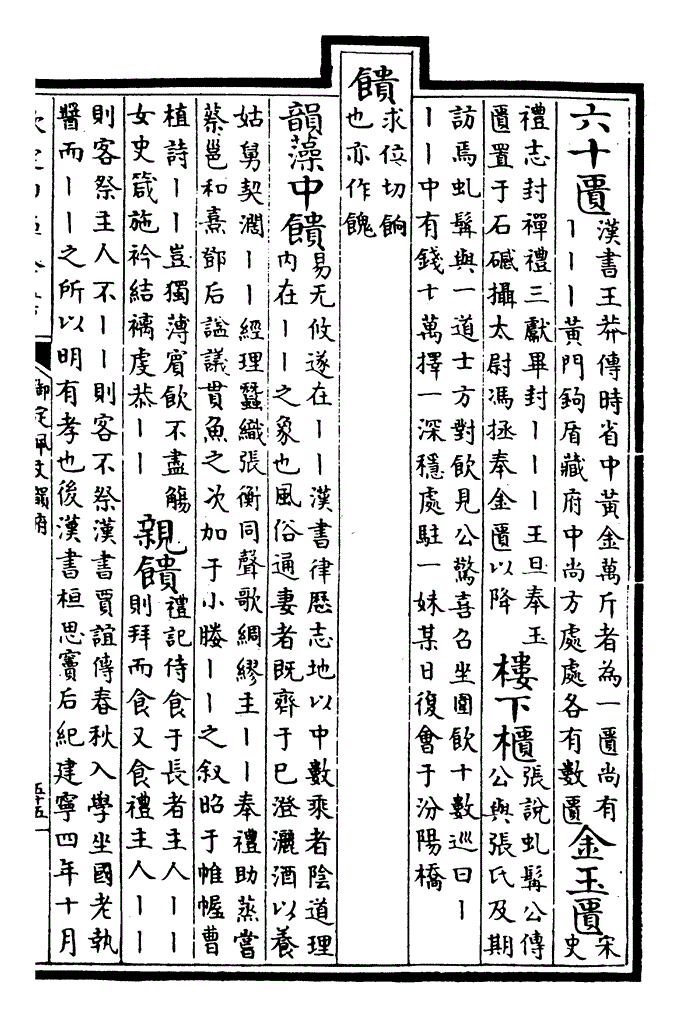 六十匱
漢書王莽傳時省中黃金萬斤者為一匱尚有
丨丨丨黃門鉤盾藏府中尚方處處各有數匱
金玉匱
宋
史
禮志封禪禮三獻畢封丨丨丨王旦奉玉
匱置于石䃭攝太尉馮拯奉金匱以降
樓下櫃
張說虬髯公傳
公與張氏及期
訪焉虬髯與一道士方對飲見公驚喜召坐圍飲十數巡曰丨
丨丨中有錢十萬擇一深穩處駐一妹某日復會于汾陽橋
饋
求位切餉
也亦作餽
韻藻中饋
易无攸遂在丨丨漢書律歷志地以中數乘者陰道理
內在丨丨之象也風俗通妻者既齊于已澄灑酒以養
姑舅契濶丨丨經理蠶織張衡同聲歌綢繆主丨丨奉禮助蒸嘗
蔡邕和熹鄧后諡議貫魚之次加于小媵丨丨之叙昭于帷幄曹
植詩丨丨豈獨薄賓飲不盡觴
女史箴施衿結褵虔恭丨丨
親饋
禮記侍食于長者主人丨丨
則拜而食又食禮主人丨丨
則客祭主人不丨丨則客不祭漢書賈誼傳春秋入學坐國老執
醬而丨丨之所以明有孝也後漢書桓思竇后紀建寧四年十月
御定佩文韻府